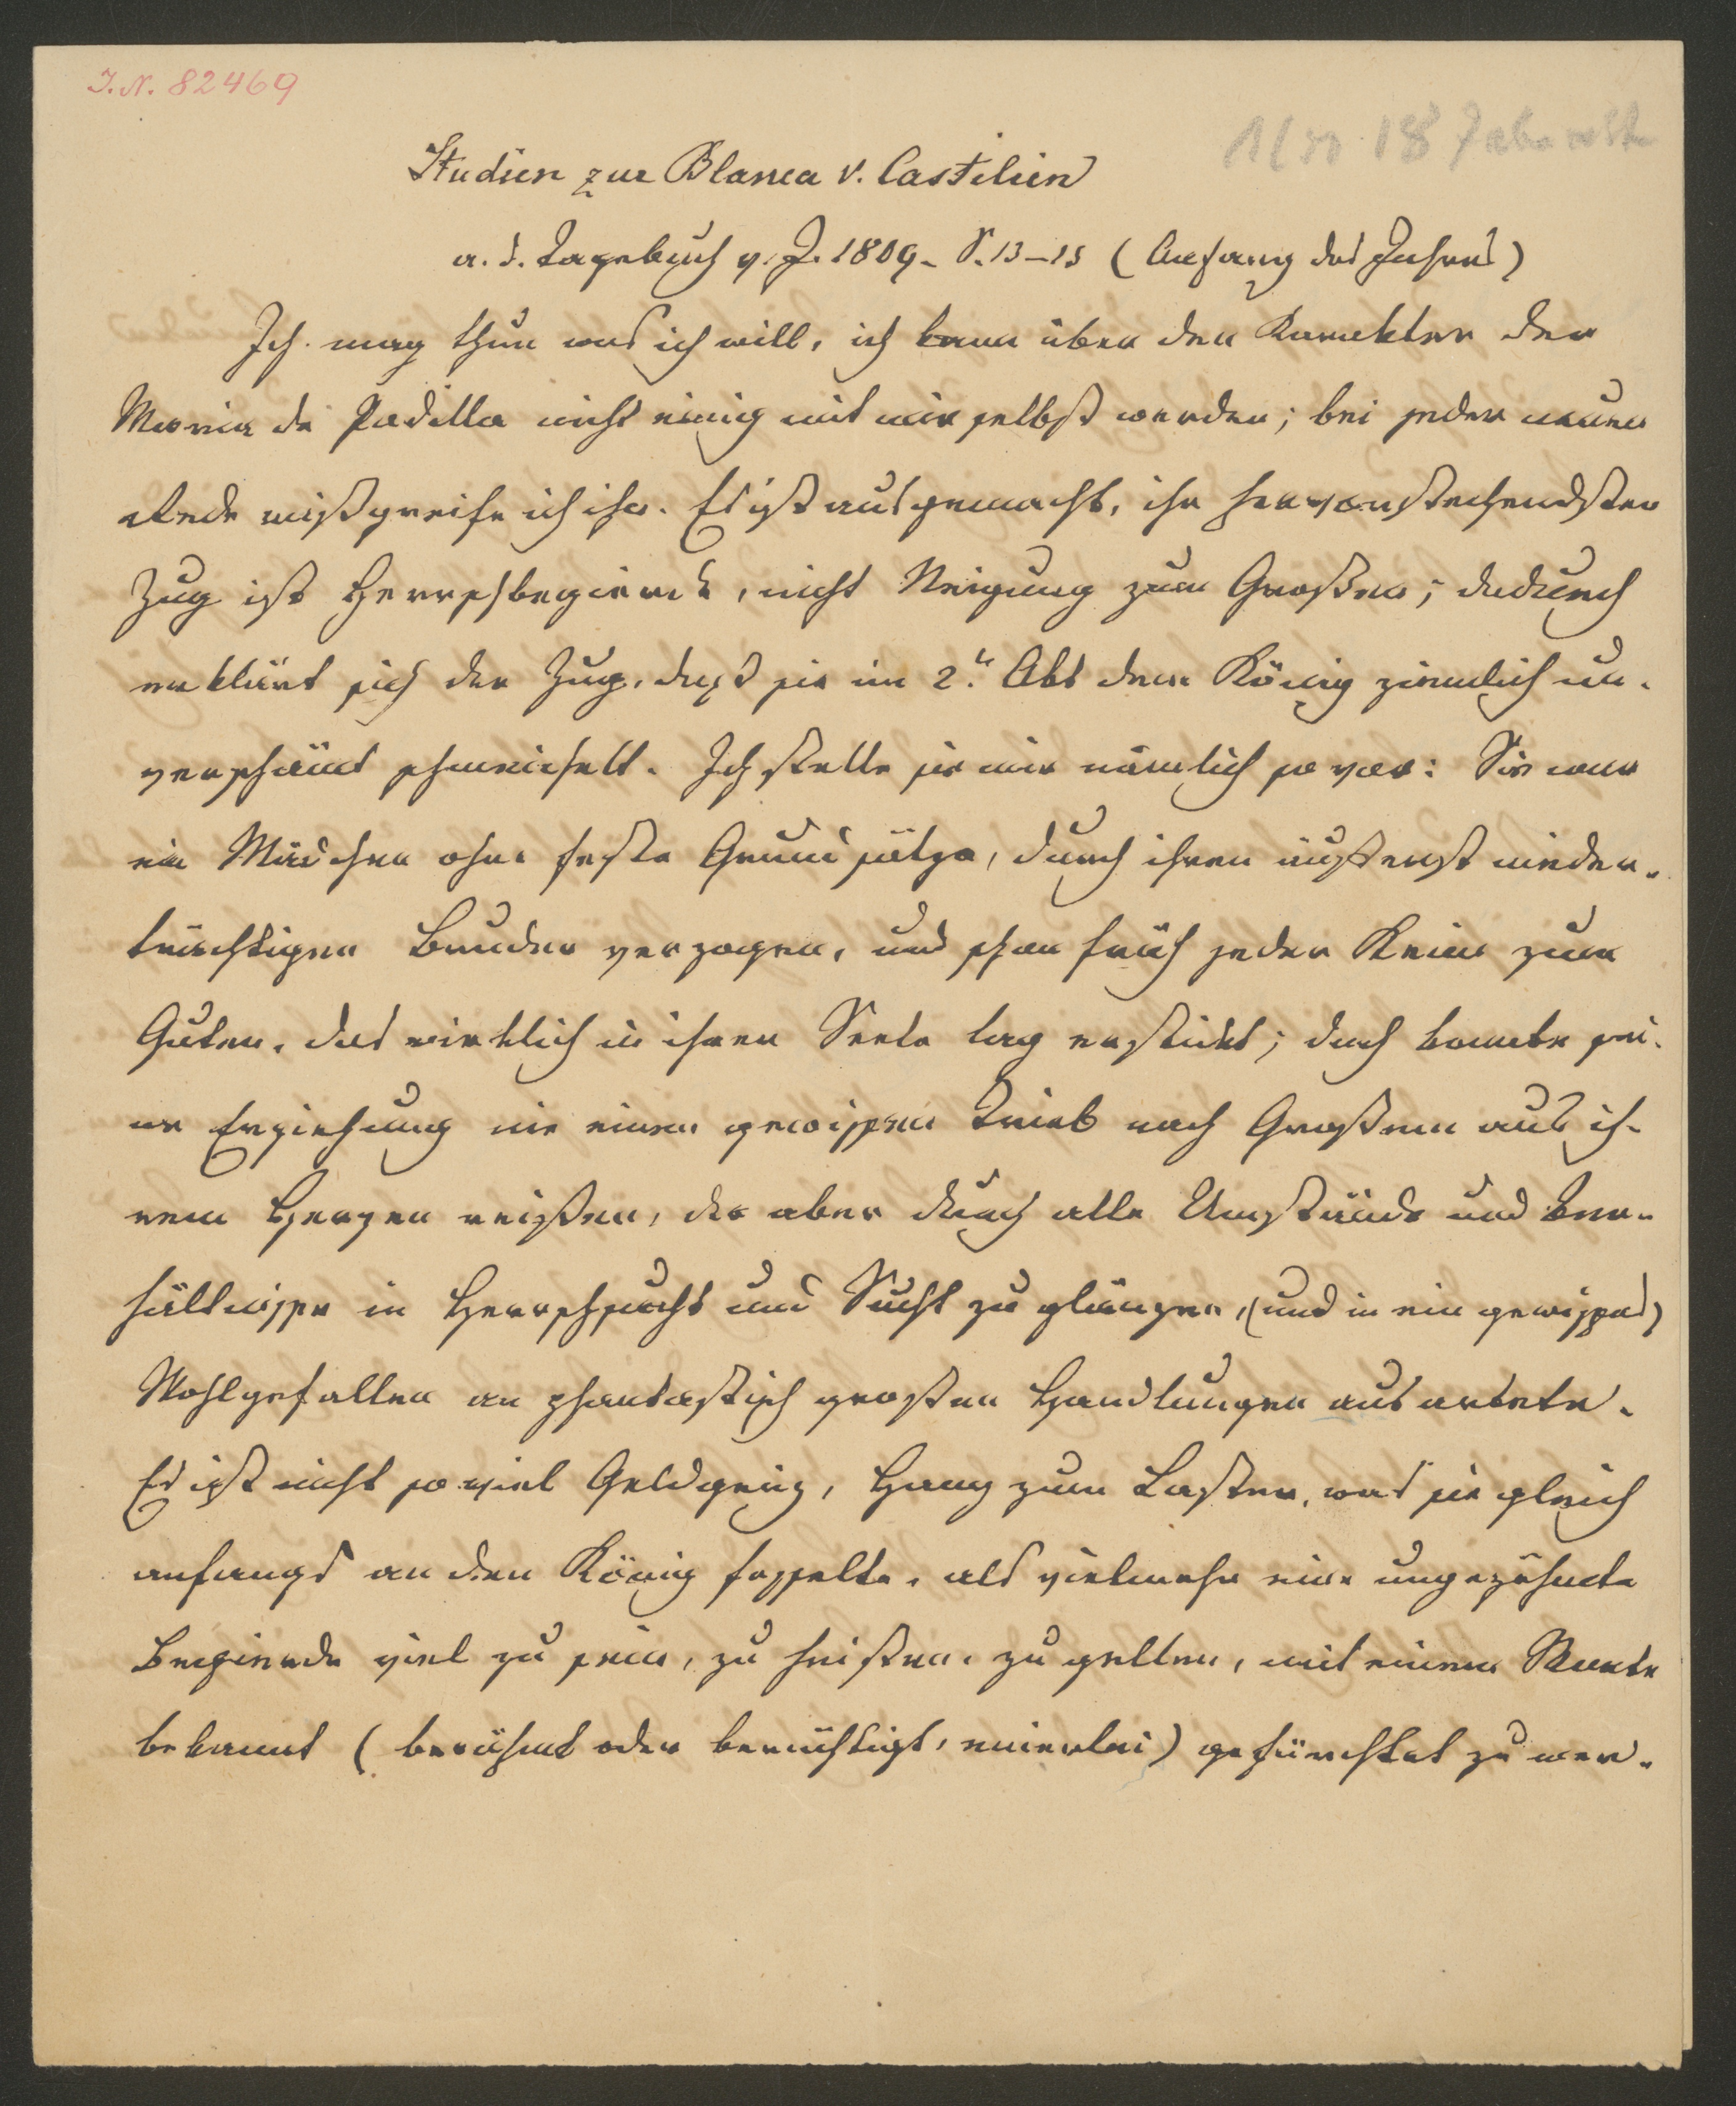 J. N. 82469
18 Jahre alt
Studien zur Blanca v. Castilien
a. d. Tagebuch v. J. 1809 - S. 13-15 (Anfang des Jahres)
Ich mag thun was ich will, ich kann über den Karakter der
Maria de Padilla nicht einig mit mir selbst werden; bei jeder neuen
Rede mißgreife ich ihn. Es ist ausgemacht, ihr hervorstechendster
Zug ist Herrschbegierde, nicht Neigung zum Großen; dadurch
erklärt sich der Zug, dass sie im 2. Akt dem König ziemlich un-
verschämt schmeichelt. Ich stelle sie mir nämlich so vor: Sie war
ein Mädchen ohne feste Grundsätze, durch ihren äußerst nieder-
trächtigen Bruder verzogen, und schon früh jeder Keim zum
Guten, das wirklich in ihrer Seele lag erstickt; doch konnte sei-
ne Erziehung nie einen gewissen Trieb nach Großem aus ih-
rem Herzen reißen, der aber durch alle Umstände und Ver-
hältnisse in Herrschsucht und Sucht zu glänzen, (und in ein gewisses)
Wohlgefallen an phantastisch großen Handlungen ausartete.
Es ist nicht so viel Geldgeiz, Hang zum Laster, was sie gleich
anfangs an den König fesselte, als vielmehr eine ungezähmte
Begierde viel zu sein, zu heißen, zu gelten, mit einem Worte
bekannt (berühmt oder berüchtigt, einerlei) gefürchtet zu wer-